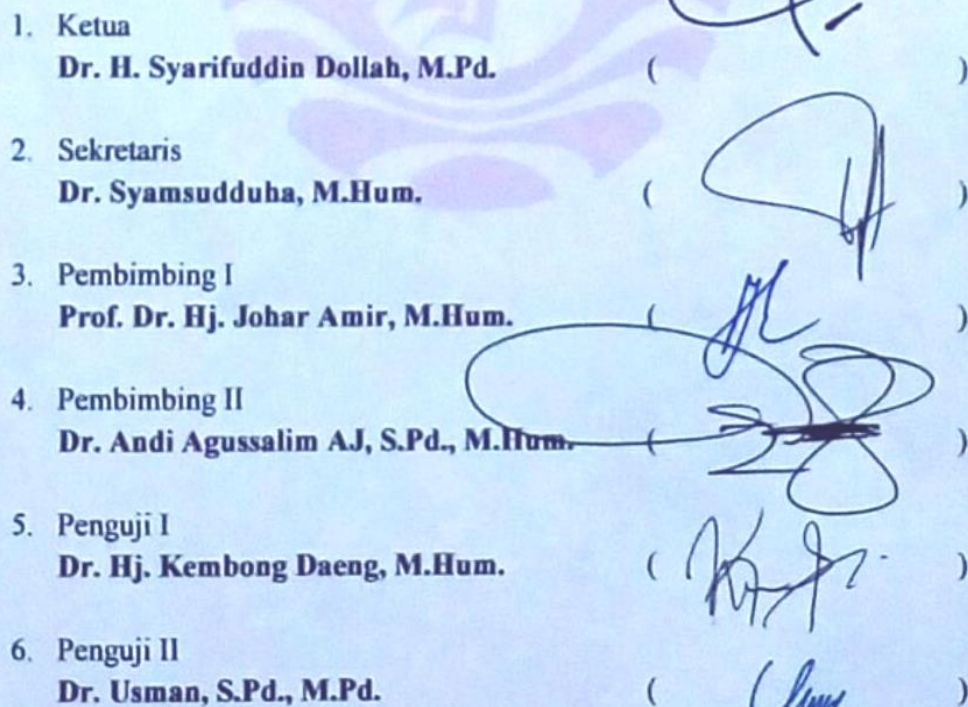 1. Ketua
Dr. H. Syarifuddin Dollah, M.Pd. ( )
2. Sekretaris
Dr. Syamsudduha, M.Hum. ( )
3. Pembimbing I
Prof. Dr. Hj. Johar Amir, M.Hum. ( )
4. Pembimbing II
Dr. Andi Agussalim AJ, S.Pd., M.Hum. ( )
5. Penguji I
Dr. Hj. Kembong Daeng, M.Hum. ( )
6. Penguji II
Dr. Usman, S.Pd., M.Pd. ( )